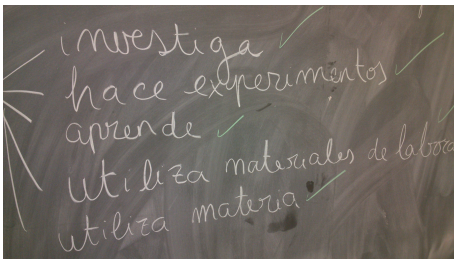 investiga
hace experimentos
aprende
utiliza materiales de labora
utiliza materia